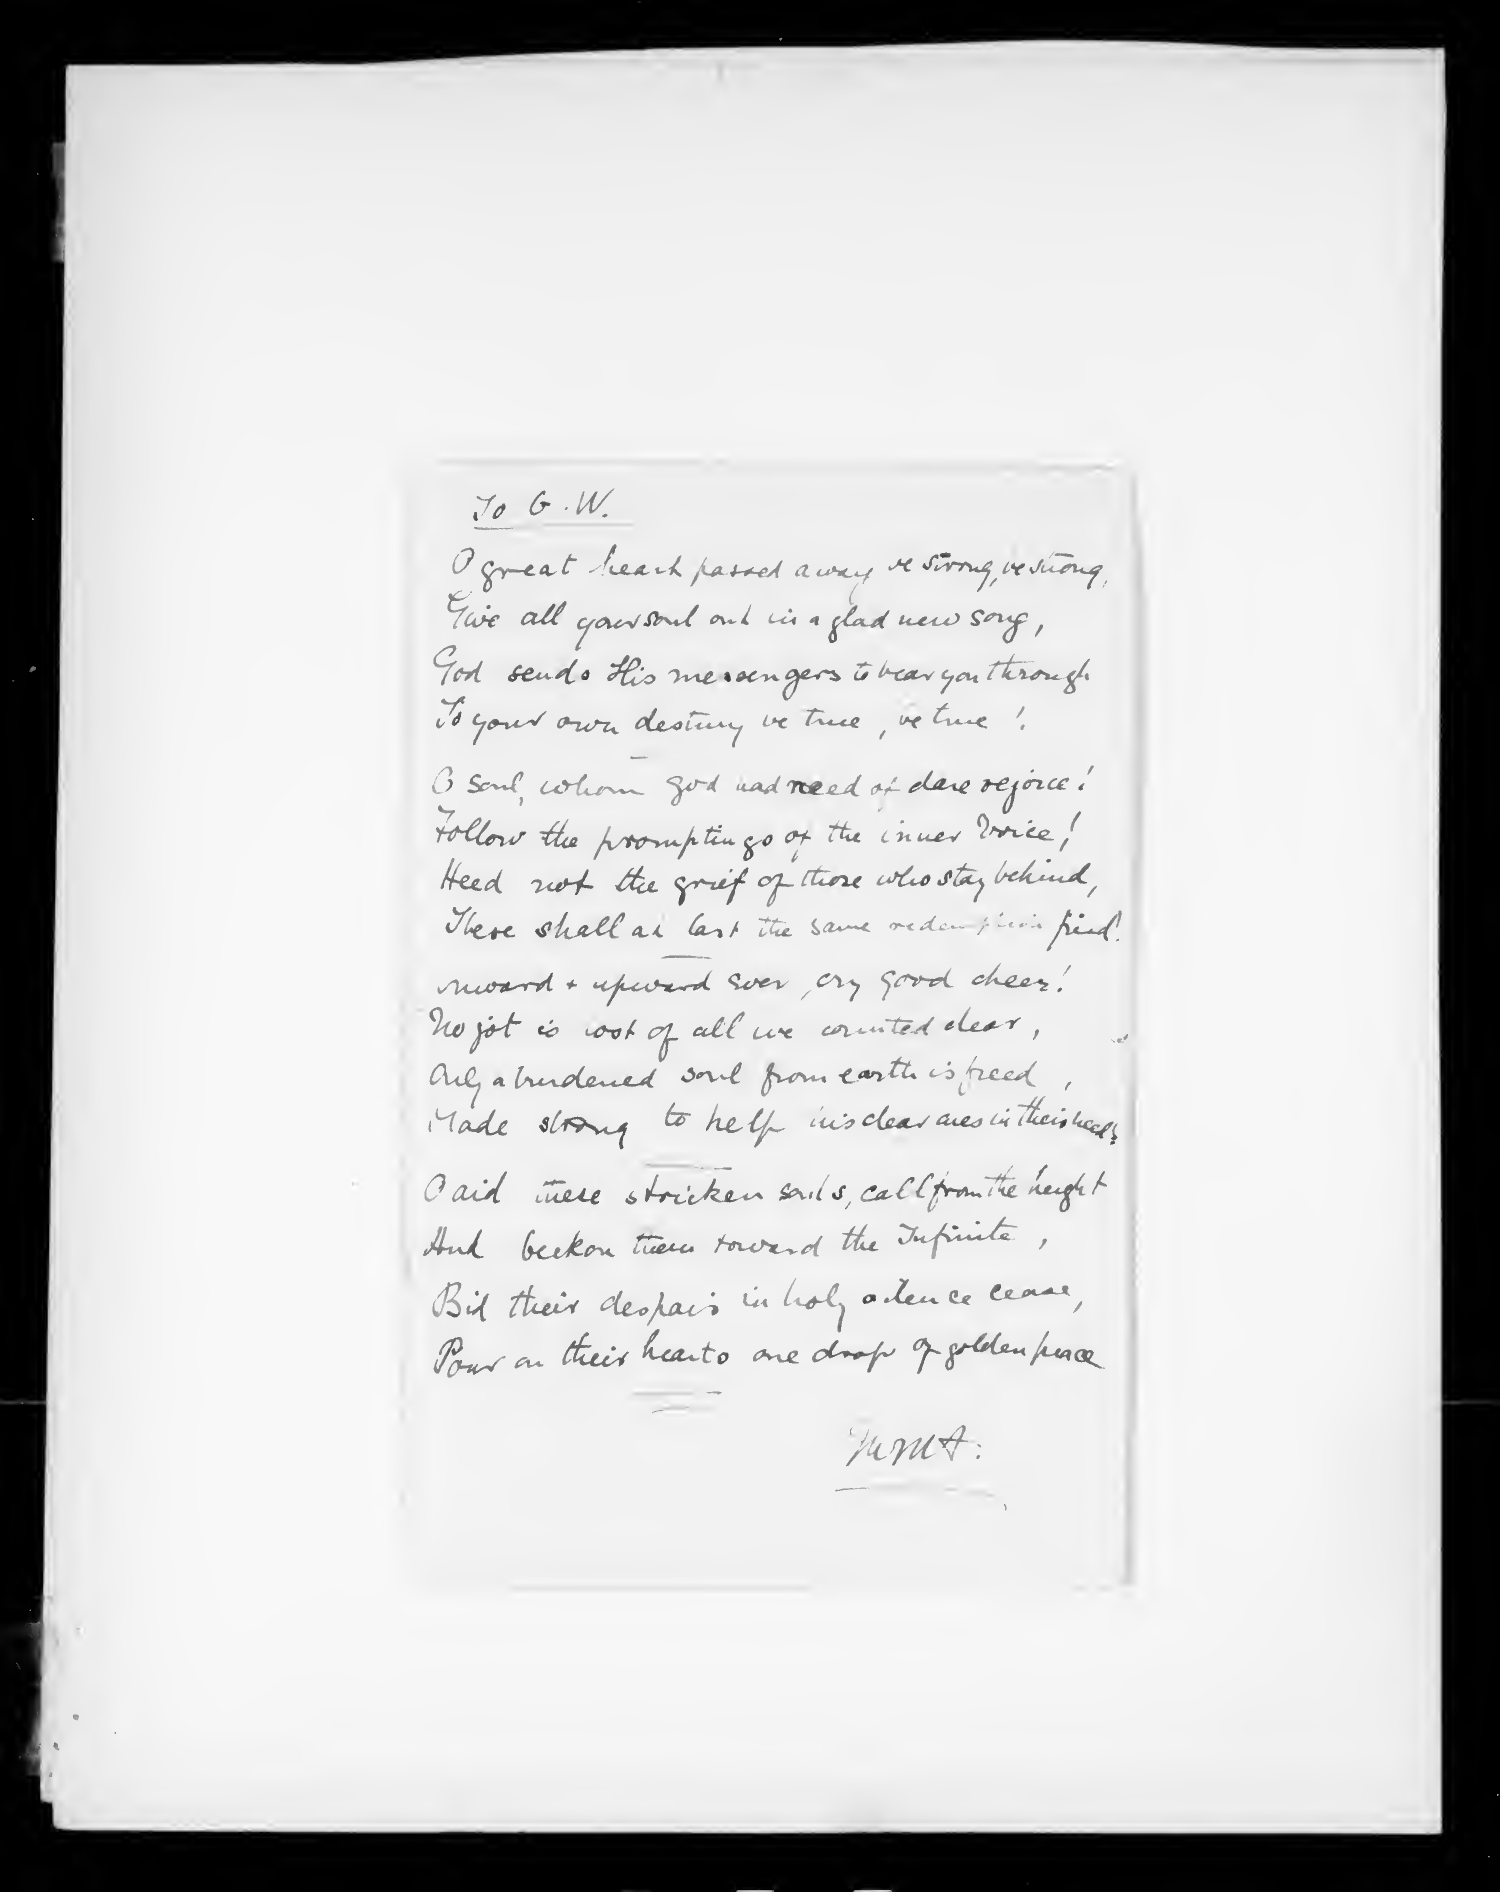 To G. W.
O great heart passed away be strong, be strong,
Give all your soul out in a glad new song,
God sends His messengers to bear you through
To your own destiny be true, be true!
O soul, whom God had need of dare rejoice!
Follow the promptings of the inner Voice!
Heed not the grief of those who stay behind,
These shall at last the same redemption find!
Onward + upward ever, cry good cheer!
No jot is lost of all we counted dear,
Only a burdened soul from earth is freed,
Made strong to help his dear ones in their need;
O aid these stricken souls, call from the height
And beckon them toward the Infinite,
Bid their despair in holy silence cease,
Pour on their hearts one drop of golden peace